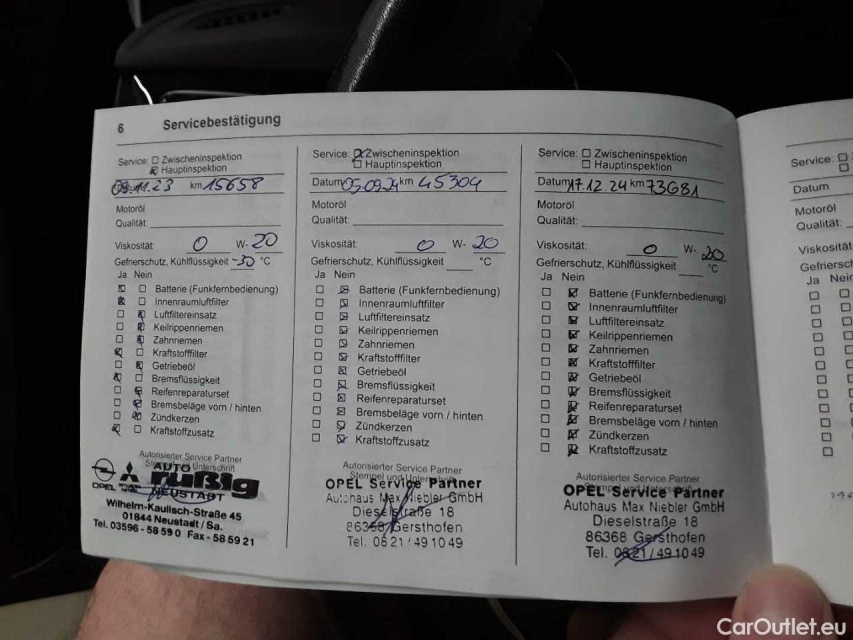 6 Servicebestätigung
Service: Zwischeninspektion
Hauptinspektion
09.11.23 km 15658
Motoröl
Qualität:
Viskosität: 0 W- 20
Gefrierschutz, Kühlflüssigkeit -30 °C
Ja Nein
Batterie (Funkfernbedienung)
Innenraumluftfilter
Luftfiltereinsatz
Keilrippenriemen
Zahnriemen
Kraftstofffilter
Getriebeöl
Bremsflüssigkeit
Reifenreparaturset
Bremsbeläge vorn / hinten
Zündkerzen
Kraftstoffzusatz
Autorisierter Service Partner
Stempel und Unterschrift
OPEL
AUTO
rußig
NEUSTADT
Wilhelm-Kaulisch-Straße 45
01844 Neustadt / Sa.
Tel. 03596 - 58 59 0 Fax - 58 59 21
Service: Zwischeninspektion
Hauptinspektion
Datum 05.09.24 km 45304
Motoröl
Qualität:
Viskosität: 0 W- 20
Gefrierschutz, Kühlflüssigkeit °C
Ja Nein
Batterie (Funkfernbedienung)
Innenraumluftfilter
Luftfiltereinsatz
Keilrippenriemen
Zahnriemen
Kraftstofffilter
Getriebeöl
Bremsflüssigkeit
Reifenreparaturset
Bremsbeläge vorn / hinten
Zündkerzen
Kraftstoffzusatz
Autorisierter Service Partner
Stempel und Unterschrift
OPEL Service Partner
Autohaus Max Niebler GmbH
Dieselstraße 18
86368 Gersthofen
Tel. 0821/491049
Service: Zwischeninspektion
Hauptinspektion
Datum 17.12.24 km 73681
Motoröl
Qualität:
Viskosität: 0 W- 20
Gefrierschutz, Kühlflüssigkeit °C
Ja Nein
Batterie (Funkfernbedienung)
Innenraumluftfilter
Luftfiltereinsatz
Keilrippenriemen
Zahnriemen
Kraftstofffilter
Getriebeöl
Bremsflüssigkeit
Reifenreparaturset
Bremsbeläge vorn / hinten
Zündkerzen
Kraftstoffzusatz
Autorisierter Service Partner
Stempel und Unterschrift
OPEL Service Partner
Autohaus Max Niebler GmbH
Dieselstraße 18
86368 Gersthofen
Tel. 0821/491049
Service:
Datum
Motoröl
Qualität:
Viskosität
Gefriersc
Ja Nein
CarOutlet.eu